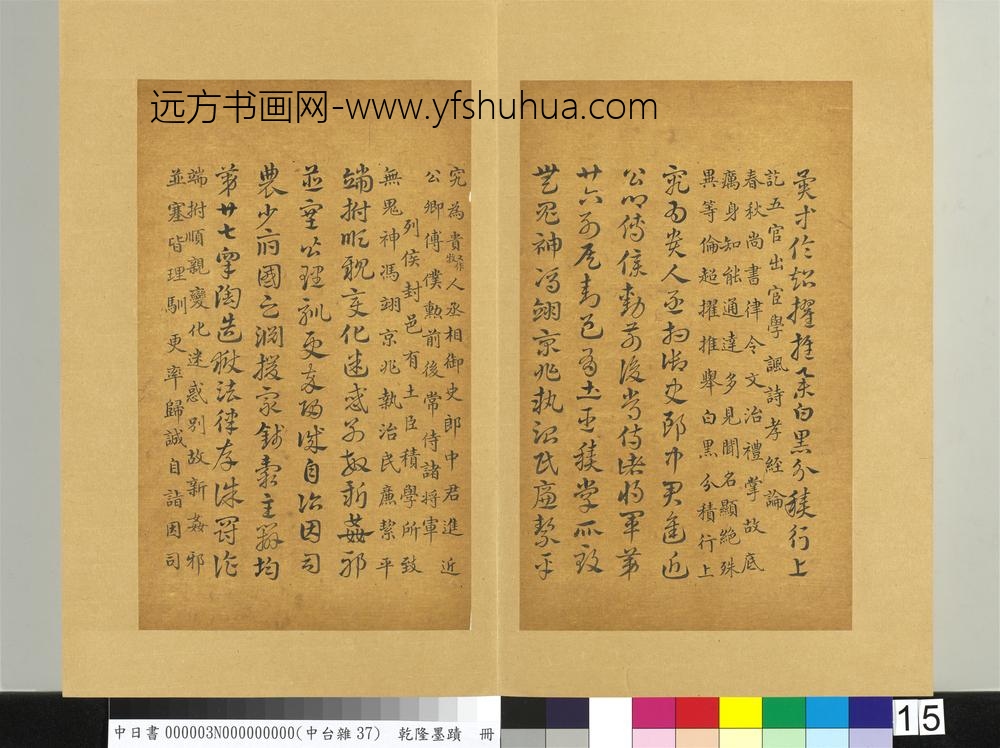 远方书画网-www.yfshuhua.com
異等倫超擢推舉白黑分積行上
訖五官出官學諷詩孝經論
春秋尚書律令文治禮掌故底
厲身知能通達多見聞名顯絶殊
異等倫超擢推舉白黑分積行上
究為貴人丞相御史郎中君進近
公卿傅僕勳前後常侍諸將軍第
廿六列侯封邑有土臣積學所致
無鬼神馮翊京兆執治民廉絜平
究為貴人丞相御史郎中君進近
公卿傅僕勳前後常侍諸將軍
列侯封邑有土臣積學所致
無鬼神馮翊京兆執治民廉絜平
端拊順親變化迷惑别故新姦邪
並塞皆理馴更卒歸誠自詣因司
農少府國之淵援眾錢穀主辨均
第廿七皋陶造獄法律存誅罰詐
端拊順親變化迷惑别故新姦邪
並塞皆理馴更率歸誠自詣因司
中日書 000003N000000000(中台雜 37) 乾隆墨蹟 冊
15